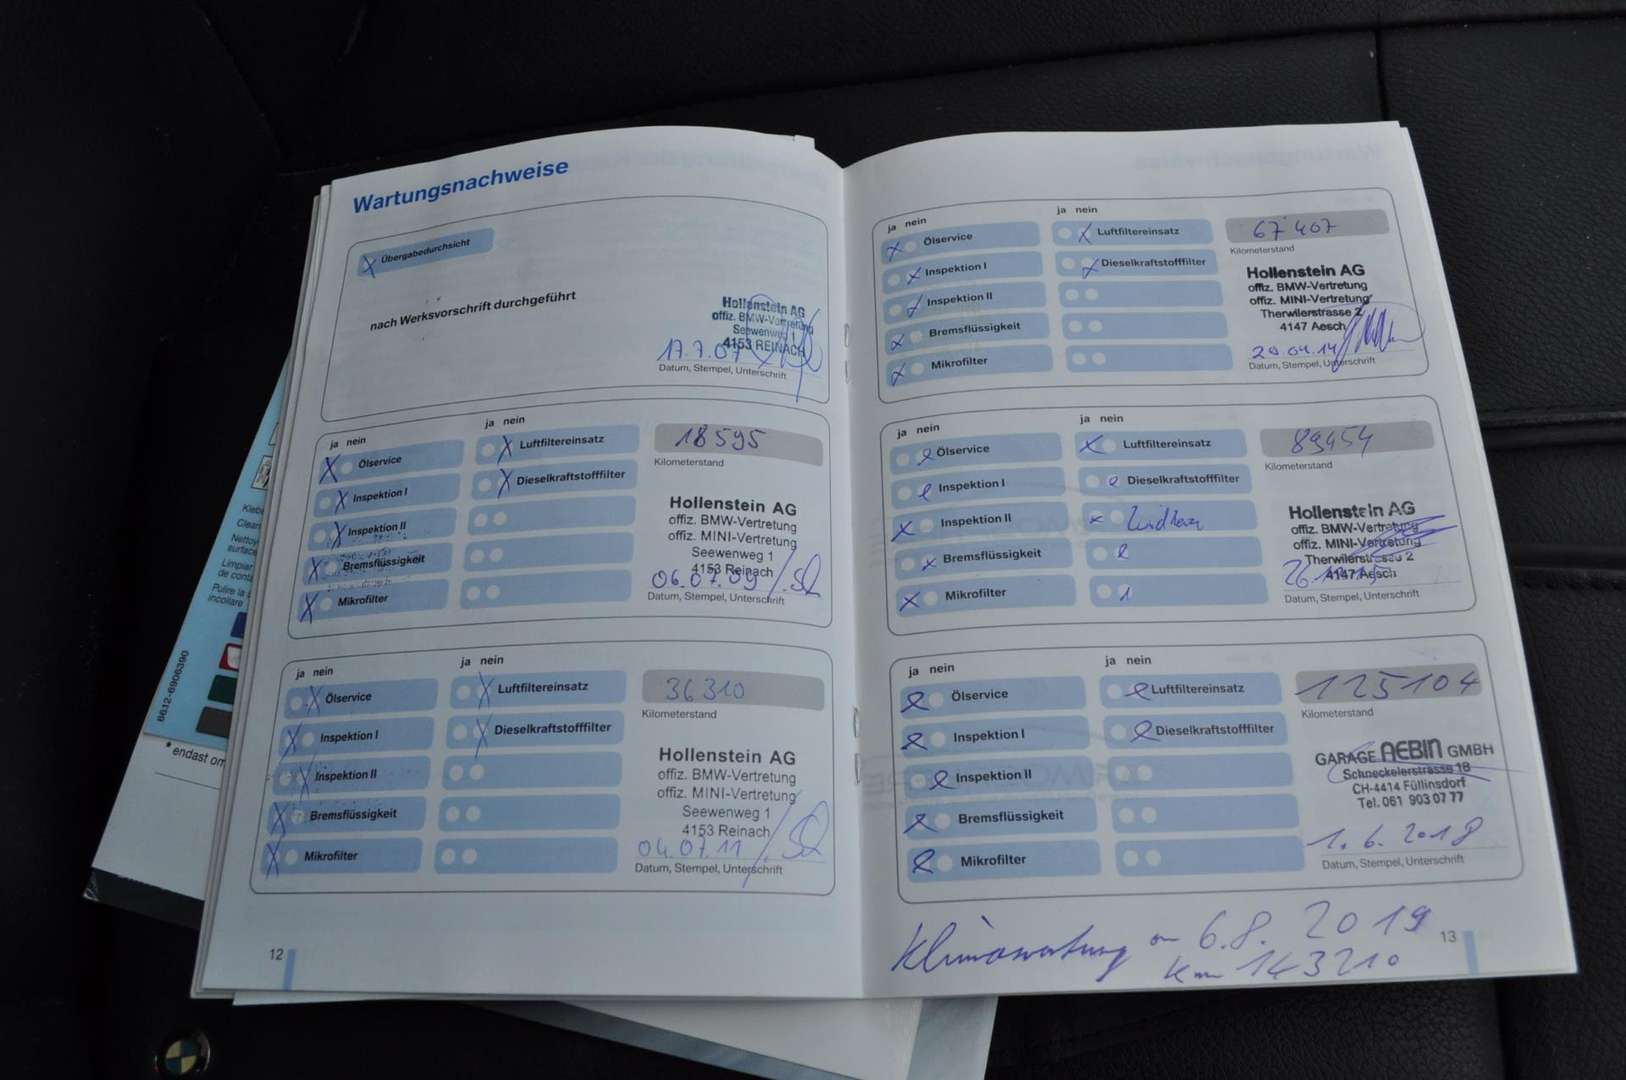 Wartungsnachweise
Übergabedurchsicht
nach Werksvorschrift durchgeführt
Hollenstein AG
offiz. BMW-Vertretung
Seewenweg 1
4153 REINACH
17.7.07
Datum, Stempel, Unterschrift
ja nein
Ölservice
Inspektion I
Inspektion II
Bremsflüssigkeit
Mikrofilter
Luftfiltereinsatz
Dieselkraftstofffilter
18595
Kilometerstand
Hollenstein AG
offiz. BMW-Vertretung
offiz. MINI-Vertretung
Seewenweg 1
4153 Reinach
06.07.09
Datum, Stempel, Unterschrift
ja nein
ja nein
Ölservice
Inspektion I
Inspektion II
Bremsflüssigkeit
Mikrofilter
ja nein
Luftfiltereinsatz
Dieselkraftstofffilter
36310
Kilometerstand
Hollenstein AG
offiz. BMW-Vertretung
offiz. MINI-Vertretung
Seewenweg 1
4153 Reinach
04.07.11
Datum, Stempel, Unterschrift
12
ja nein
Ölservice
Inspektion I
Inspektion II
Bremsflüssigkeit
Mikrofilter
ja nein
Luftfiltereinsatz
Dieselkraftstofffilter
67407
Kilometerstand
Hollenstein AG
offiz. BMW-Vertretung
offiz. MINI-Vertretung
Therwilerstrasse 2
4147 Aesch
29.04.14
Datum, Stempel, Unterschrift
ja nein
Ölservice
Inspektion I
Inspektion II
Bremsflüssigkeit
Mikrofilter
ja nein
Luftfiltereinsatz
Dieselkraftstofffilter
89454
Kilometerstand
Hollenstein AG
offiz. BMW-Vertretung
offiz. MINI-Vertretung
Therwilerstrasse 2
4147 Aesch
Datum, Stempel, Unterschrift
ja nein
Ölservice
Inspektion I
Inspektion II
Bremsflüssigkeit
Mikrofilter
ja nein
Luftfiltereinsatz
Dieselkraftstofffilter
125104
Kilometerstand
GARAGE AEBIN GMBH
Schneckelerstrasse 18
CH-4414 Füllinsdorf
Tel. 061 903 07 77
1.6.2018
Datum, Stempel, Unterschrift
Klimawartung am 6.8.2019
km 143210
13
6612-6906390
* endast om